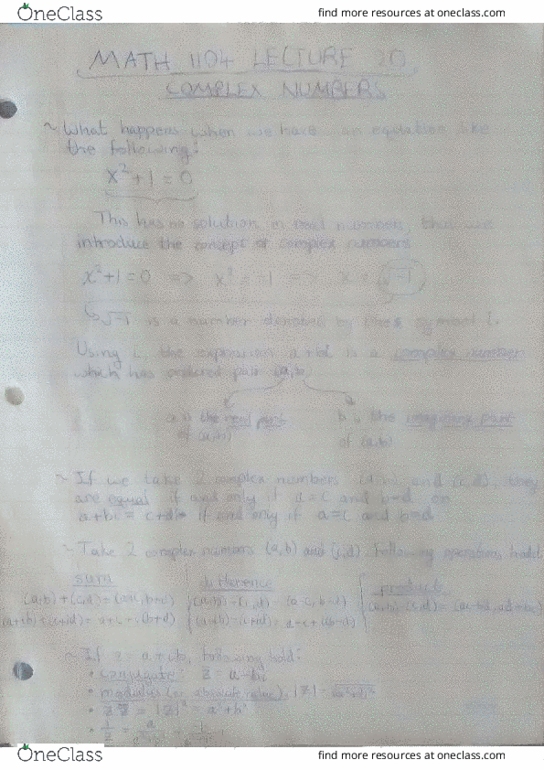 OneClass find more resources at oneclass.com
MATH 1104 LECTURE 20
COMPLEX NUMBERS
~ What happens when we have an equation like
the following:
x²+1=0
This has no solution in real numbers, thus we
introduce the concept of complex numbers
x²+1=0 => x² = -1 => x = √-1
√-1 is a number denoted by the symbol i.
Using i, the expression a+bi is a complex number
which has ordered pair (a,b)
a is the real part b is the imaginary part
of (a,b) of (a,b)
~ If we take 2 complex numbers (a,b) and (c,d), they
are equal if and only if a=c and b=d or
a+bi = c+di if and only if a=c and b=d
~ Take 2 complex numbers (a,b) and (c,d). Following operations hold:
sum difference product
(a,b)+(c,d)=(a+c,b+d) (a,b)-(c,d)=(a-c,b-d)
~ If z = a+ib, following hold:
• conjugate: z̄ = a-bi
• modulus (or absolute value), |z| =
• z z̄ = |z|² = a²+b²
OneClass find more resources at oneclass.com